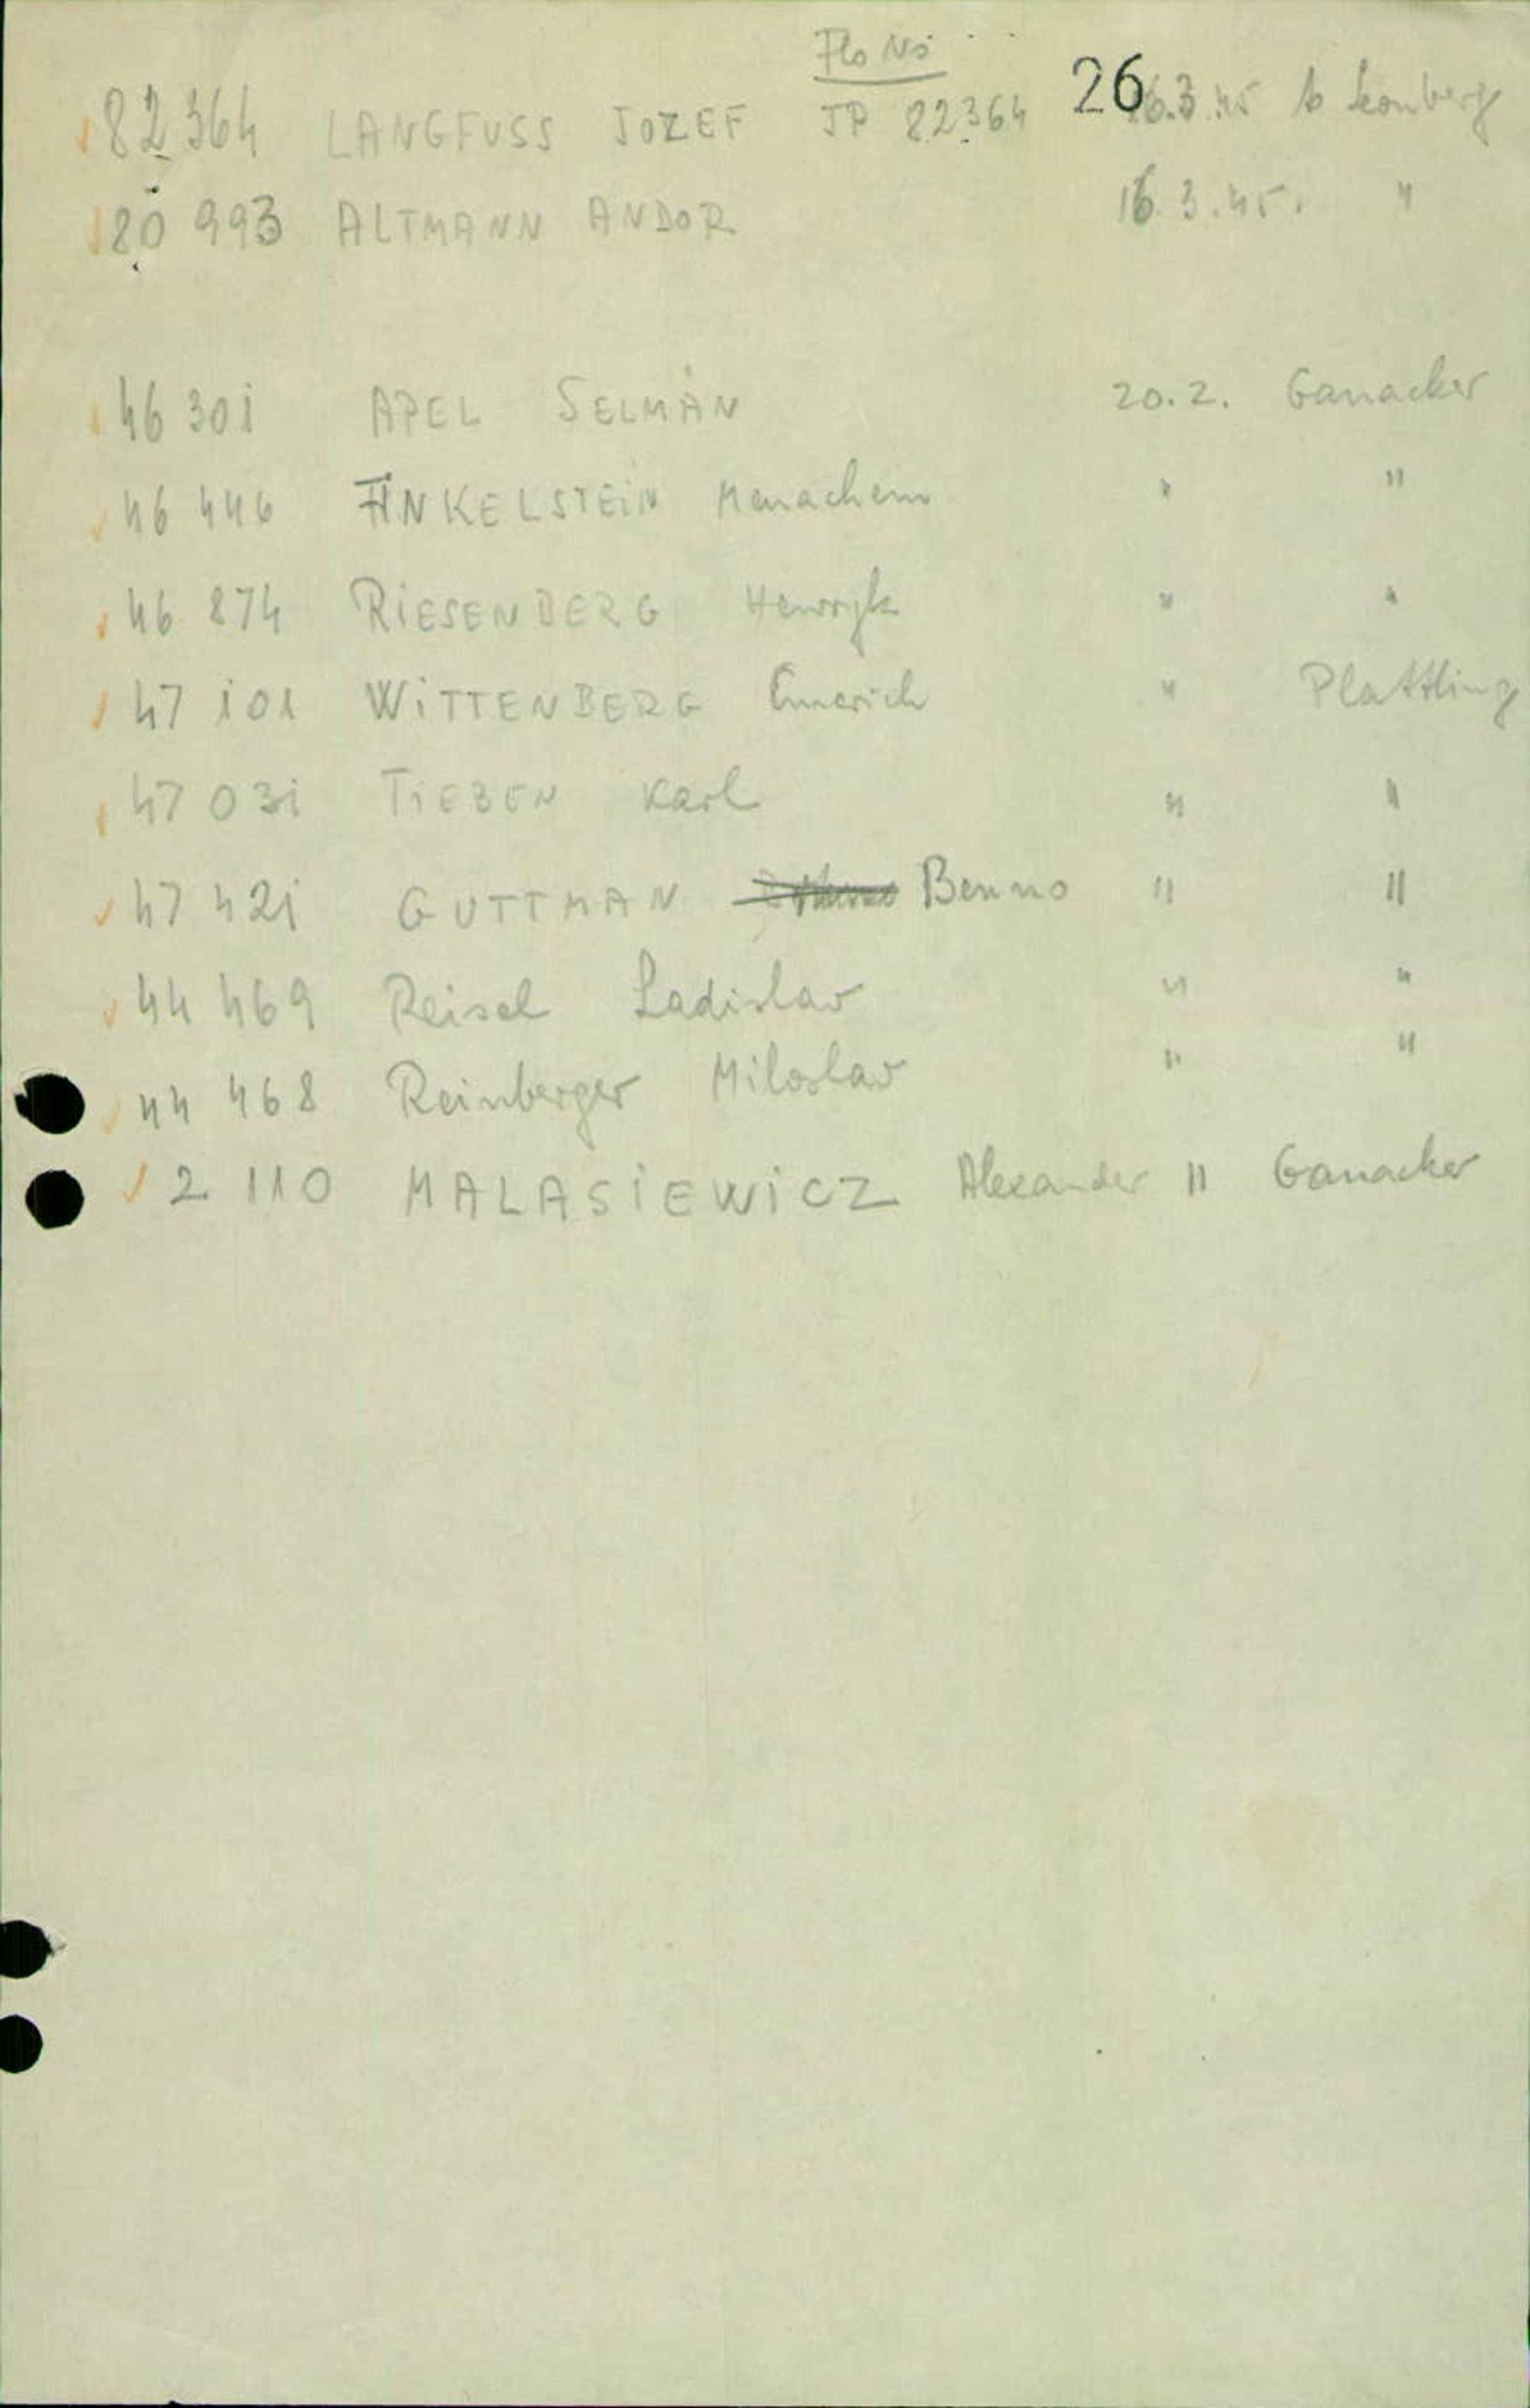 Flo No
26
82364 LANGFUSS JOZEF JP 82364 16.3.45 to Leonberg
80 993 ALTMANN ANDOR 16.3.45. "
46 301 APEL SELMAN 20.2. Ganacker
46 446 FINKELSTEIN Menachem " "
46 874 RIESENBERG Henryk " "
47 101 WITTENBERG Emerich " Plattling
47 031 TIEBEN Karl " "
47 421 GUTTMAN Benno " "
44 469 Reisel Ladislav " "
44 468 Reinberger Miloslav " "
2 110 MALASIEWICZ Alexander " Ganacker